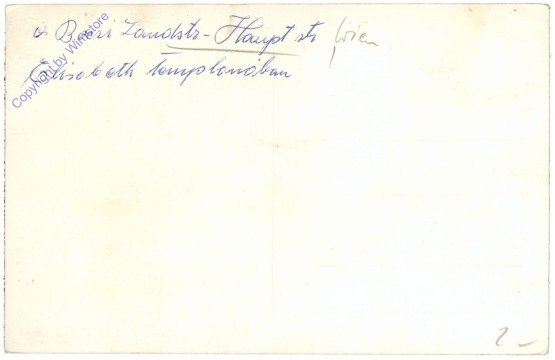 Landstr-Hauptstr, Wien
Elisabeth templomában
Copyright by Wimstore
2 –